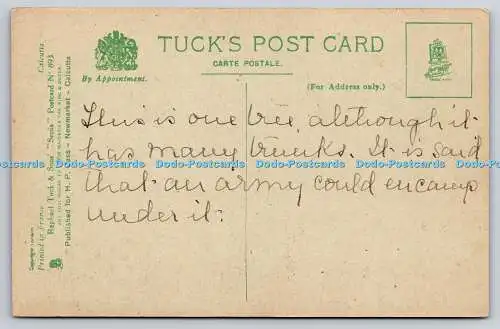 TUCK'S POST CARD
CARTE POSTALE.
By Appointment.
(For Address only.)
This is one tree, although it
has many trunks. It is said
that an army could encamp
under it.
Calcutta
Raphael Tuck & Sons' "Sepia" Postcard Nº 893.
Published for H. P. & Sons - Newmarket - Calcutta
Printed in France
Dodo-Postcards Dodo-Postcards Dodo-Postcards Dodo-Postcards Dodo-Postcards